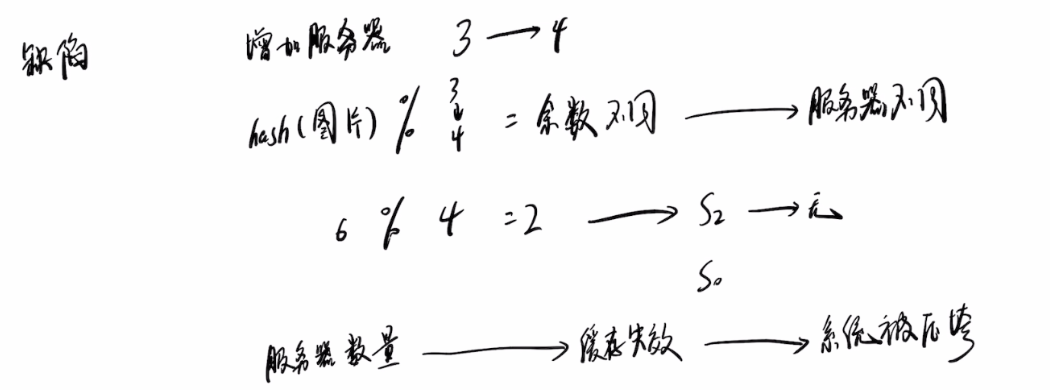 缺陷
增加服务器 3 → 4
hash(图片) % 3↓4 = 余数不同 → 服务器不同
6 % 4 = 2 → S2 → 无
S0
服务器数量 → 缓存失效 → 系统被压垮